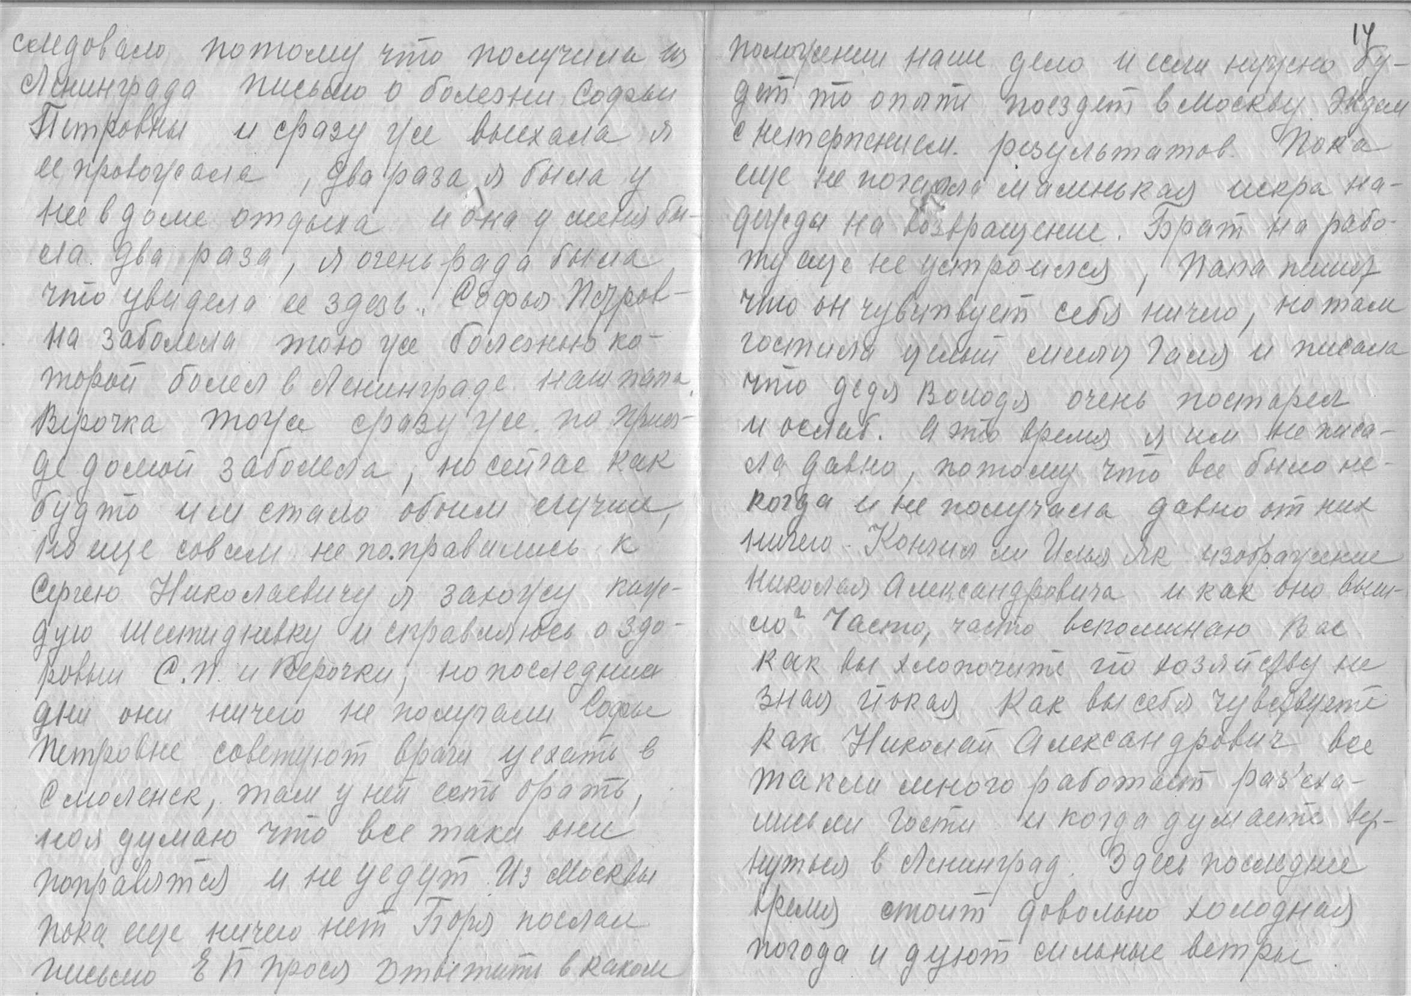 следовало потому что получила из
Ленинграда письмо о болезни Софьи
Петровны и сразу уе выехала я
ее провожала, два раза я была у
нее в доме отдыха и она у меня бы-
ла два раза, я очень рада была
что увидела ее здезь. Софья Петров-
на заболела тою уе болезнью ко-
торой болел в Ленинграде наш папа.
Верочка тоуе сразу уе по приез-
де домой заболела, но сейчас как
будто им стало обоим лучше,
но еще совсем не поправились к
Сергею Николаевичу я захожу каж-
дую шестидневку и справляюсь о здо-
ровьи С.П. и Верочки, но последние
дни они ничего не получали Софье
Петровне советуют врачи уехать в
Смоленск, там у ней есть братъ,
но я думаю что все таки они
поправятся и не уедут Из Москвы
пока еще ничего нет Боря послал
письмо Е П прося ответить в каком
17
положении наше дело и если нужно бу-
дет то опять поездет в Москву. Ждем
с нетерпением результатов. Пока
еще не погасла маленькая искра на-
дежды на возвращение. Брат на рабо-
ту еще не устроился, папа пишет
что он чувствует себя ничего, но там
гостила целый месяц Галя и писала
что дядя Володя очень постарел
и ослаб. А это время я им не писа-
ла давно, потому что все было не-
когда и не получала давно от них
ничего. Кончил ли Илья Як изображение
Николая Александровича и как оно выш-
ло? Часто, часто вспоминаю Вас
как вы хлопочите по хозяйству не
зная покоя Как вы себя чувствуете
как Николай Александрович все
также много работает раз'еха-
лись ли гости и когда думаете вер-
нуться в Ленинград. Здесь последнее
время стоит довольно холодная
погода и дуют сильные ветры